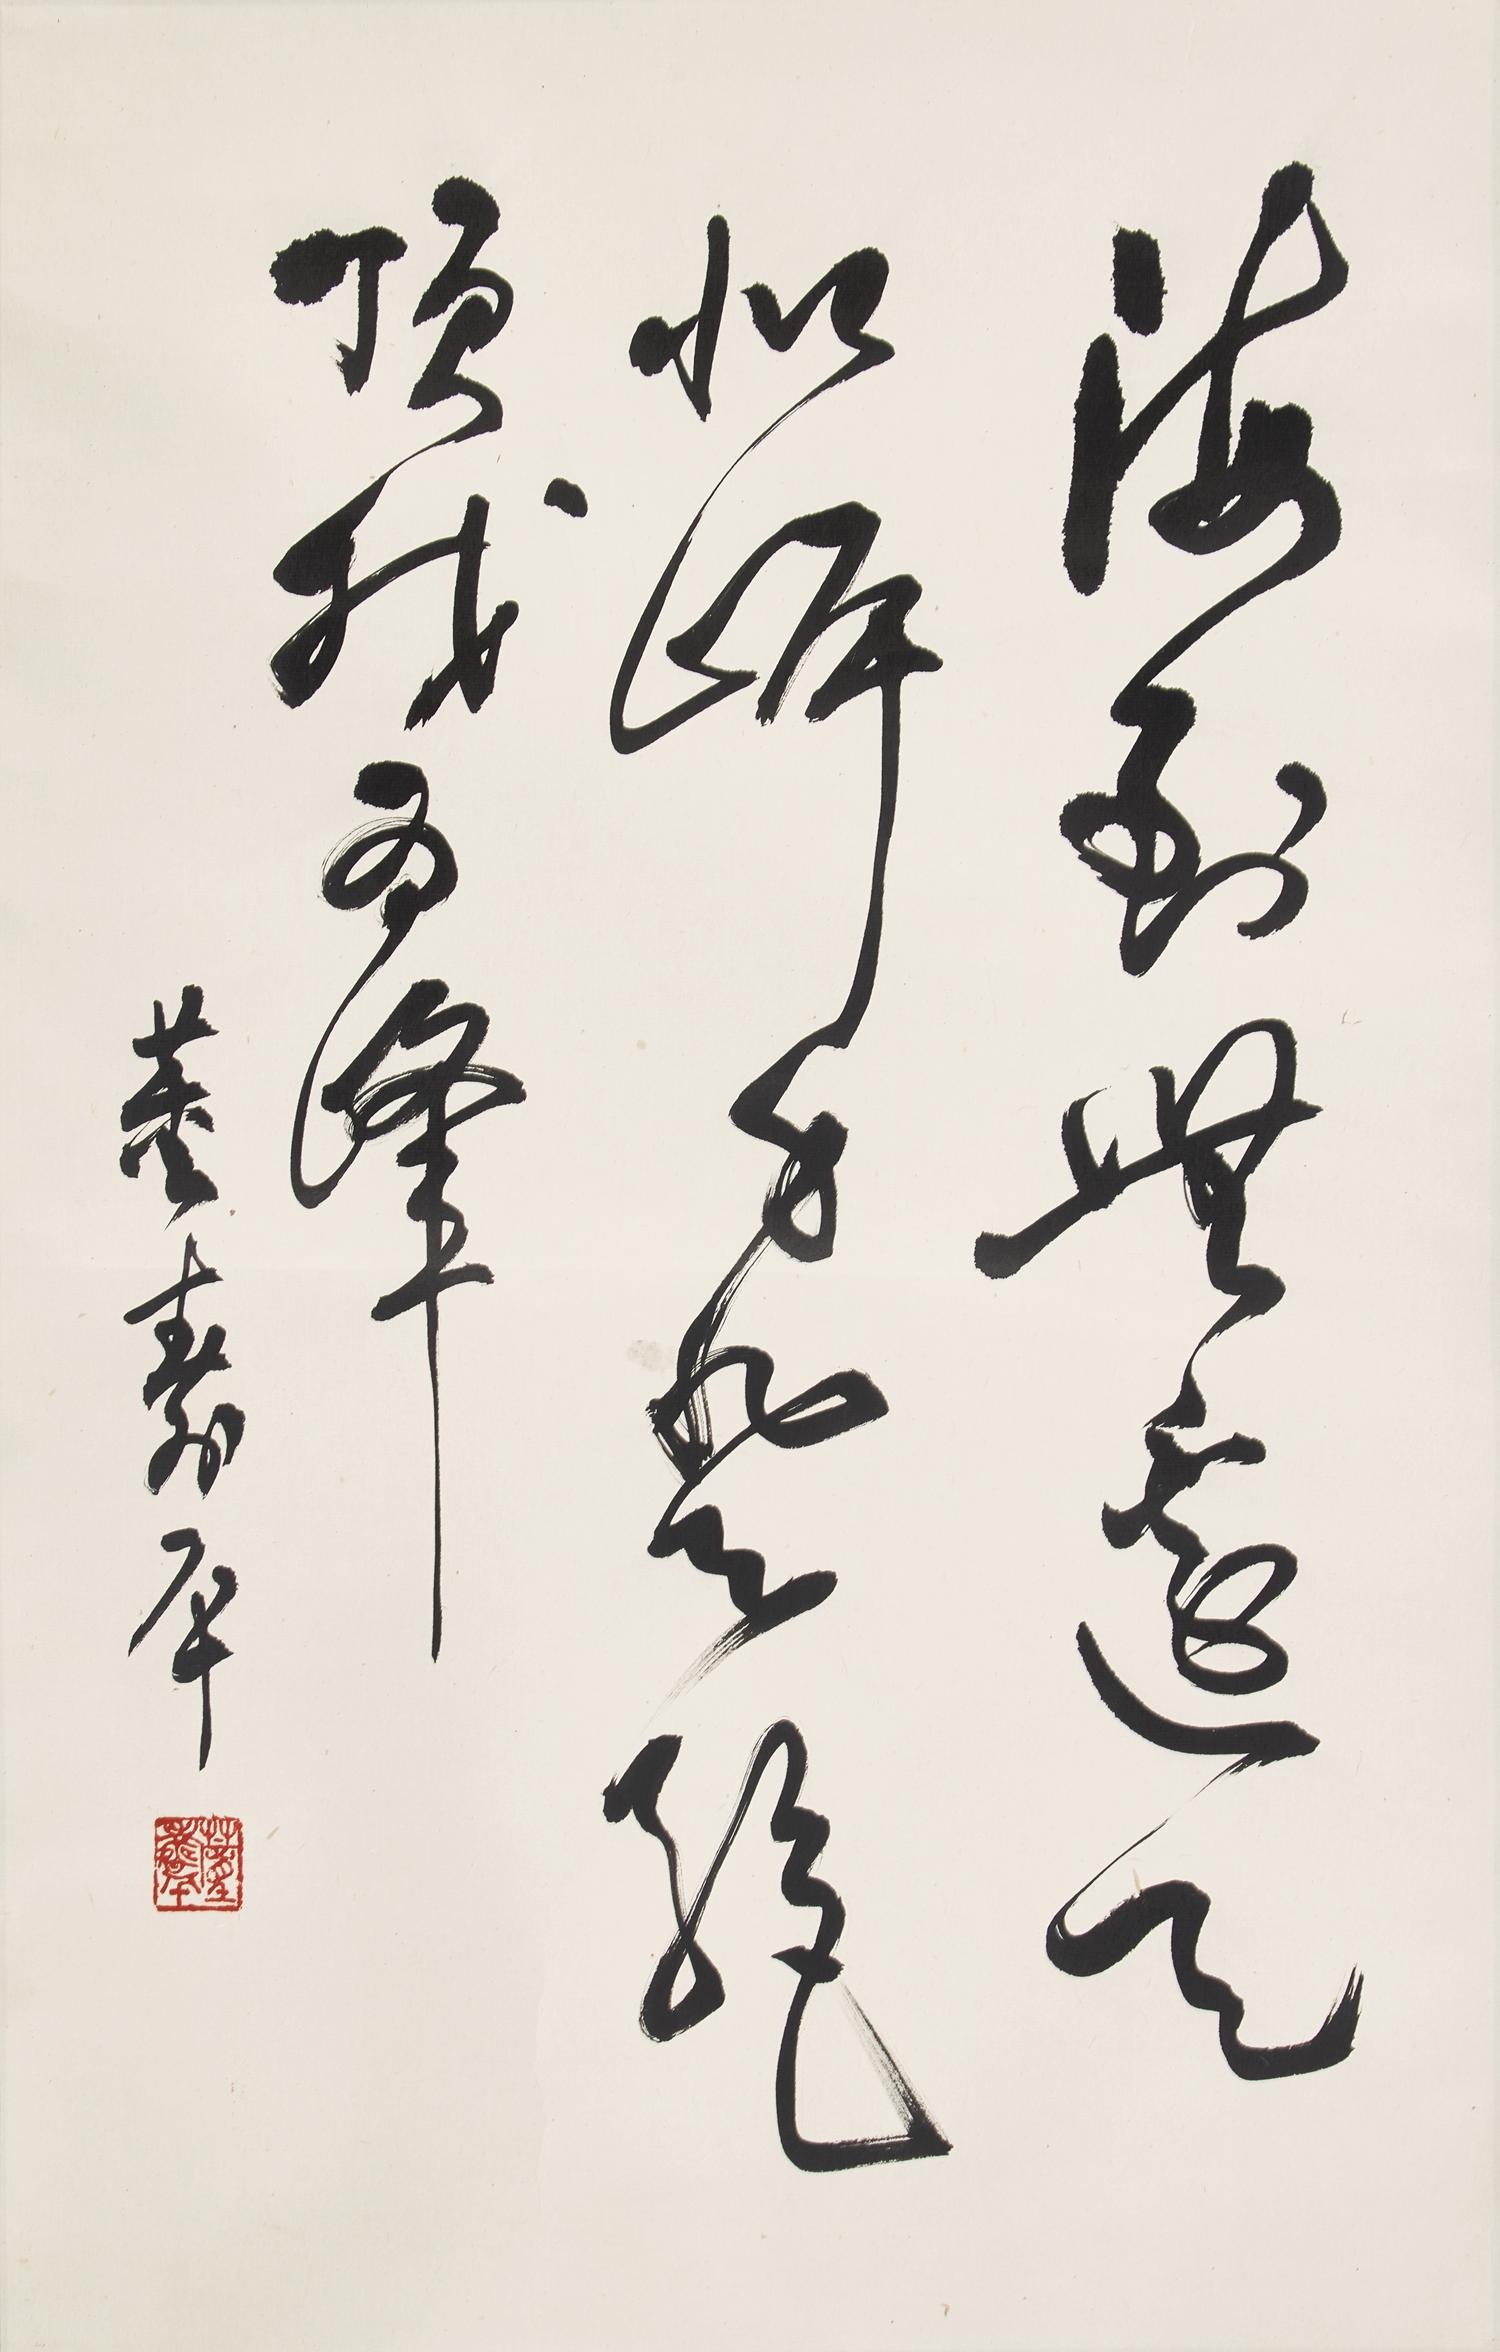 海到無邊天
似岸身登絕
頂我為峰
董壽平
董壽平